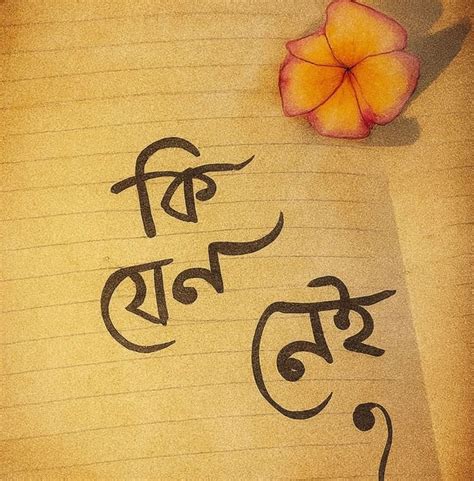 কি
যেন
নেই
,